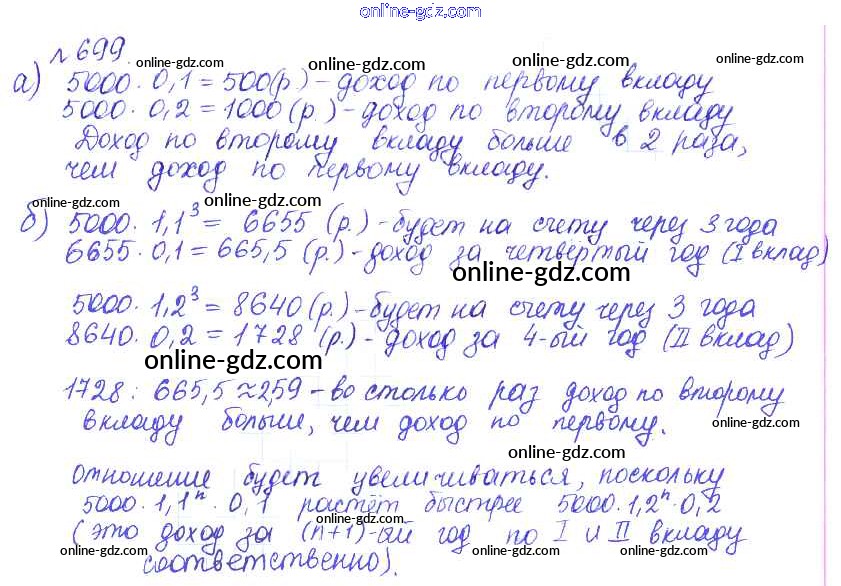 online-gdz.com
№699.
online-gdz.com online-gdz.com
а) 5000 · 0,1 = 500(р) – доход по первому вкладу
5000 · 0,2 = 1000 (р.) – доход по второму вкладу
online-gdz.com online-gdz.com
Доход по второму вкладу больше в 2 раза,
чем доход по первому вкладу.
online-gdz.com
online-gdz.com online-gdz.com
б) 5000 · 1,1³ = 6655 (р.) – будет на счету через 3 года
6655 · 0,1 = 665,5 (р.) – доход за четвёртый год (I вклад)
online-gdz.com
5000 · 1,2³ = 8640 (р.) – будет на счету через 3 года
8640 · 0,2 = 1728 (р.) – доход за 4-ый год (II вклад)
online-gdz.com
1728 : 665,5 ≈ 2,59 – во столько раз доход по второму
вкладу больше, чем доход по первому.
online-gdz.com
online-gdz.com
Отношение будет увеличиваться, поскольку
5000 · 1,1ⁿ · 0,1 растёт быстрее 5000 · 1,2ⁿ · 0,2
online-gdz.com
(это доход за (n+1)-ый год по I и II вкладу
online-gdz.com online-gdz.com online-gdz.com
соответственно).